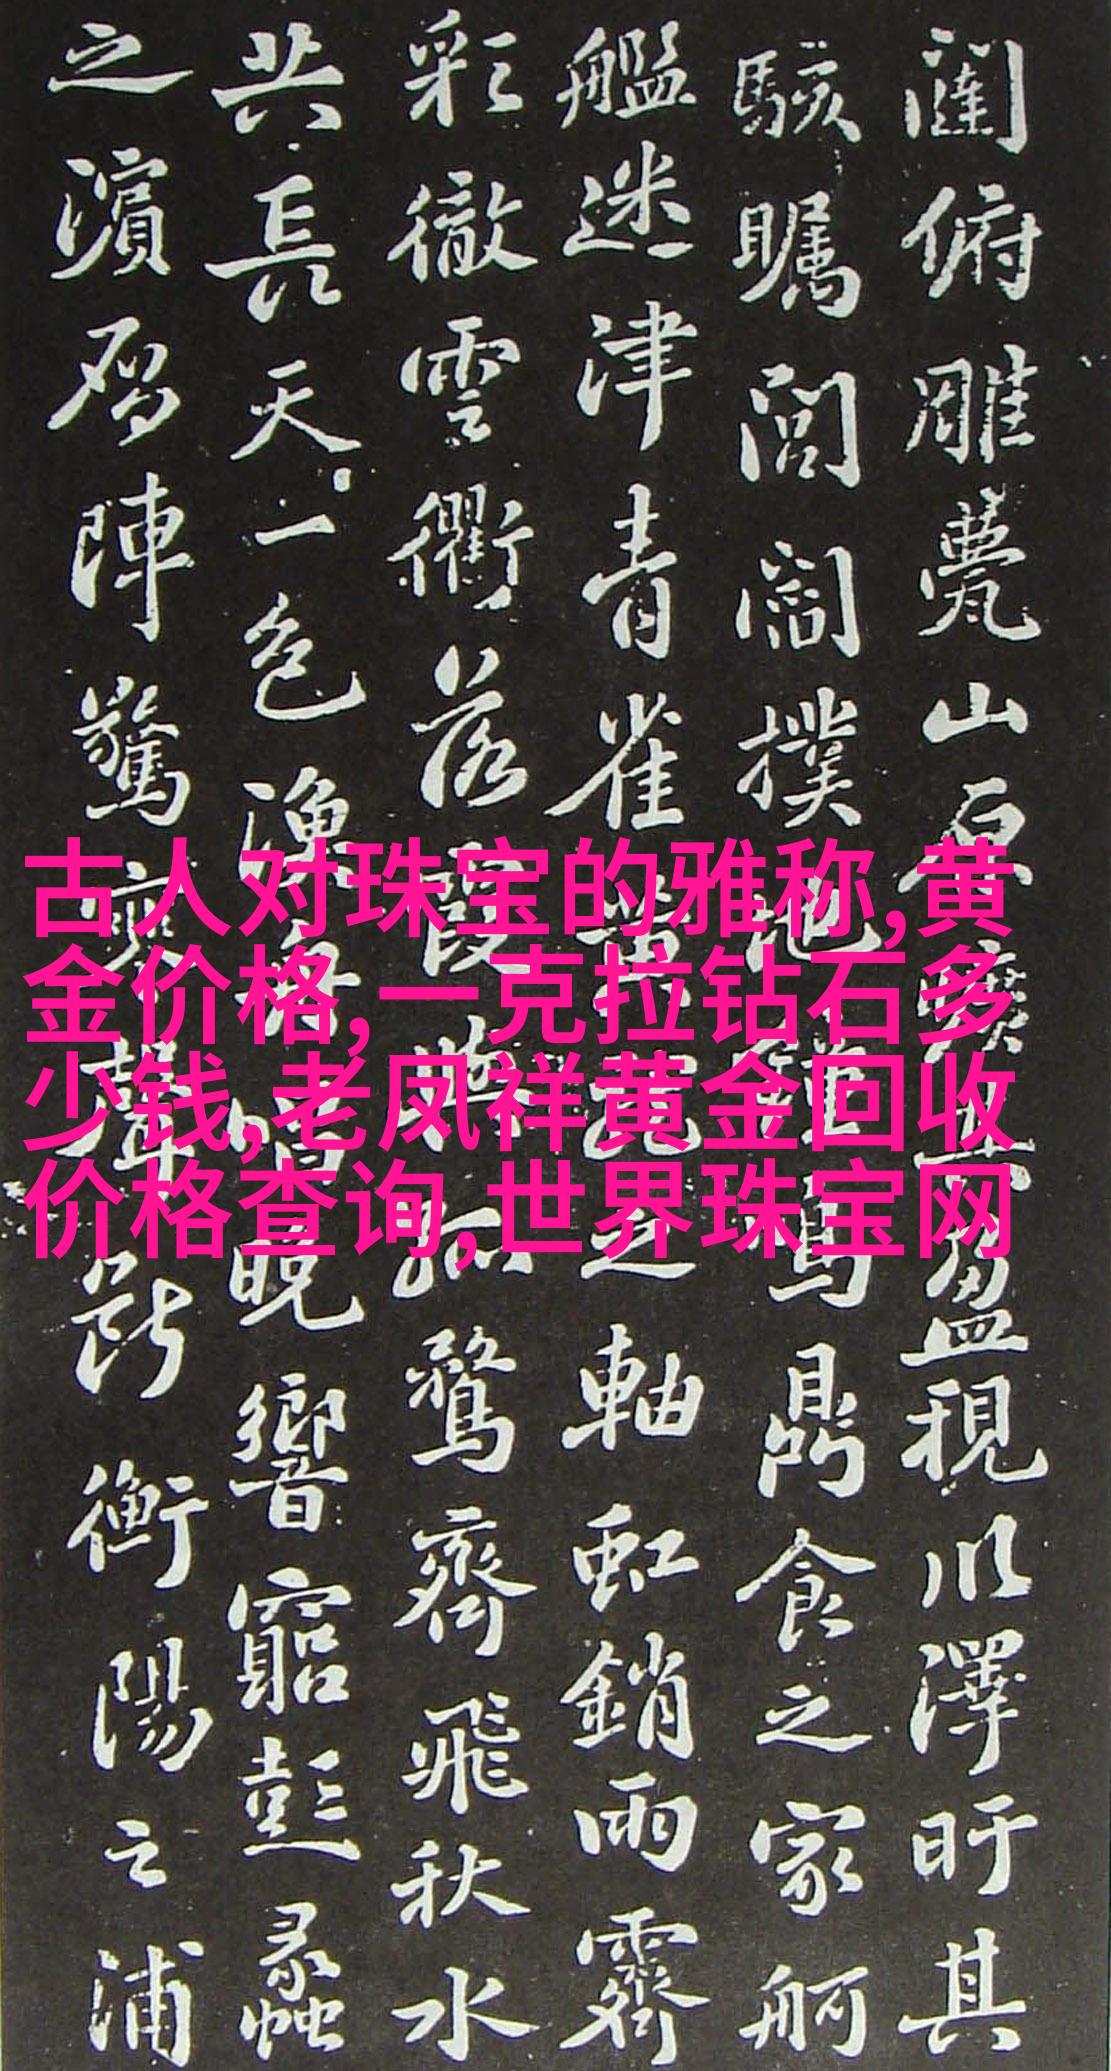 闥俯雕甍山原曠其盈視川澤盱其
駭矚閭閻撲地鐘鳴鼎食之家舸
艦迷津青雀黃龍之軸虹銷雨霽
彩徹雲衢落霞與孤鶩齊飛秋水
共長天一色漁舟唱晚響窮彭蠡
之濱雁陣驚寒聲斷衡陽之浦
古人对珠宝的雅称,黄
金价格,一克拉钻石多
少钱,老凤祥黄金回收
价格查询,世界珠宝网